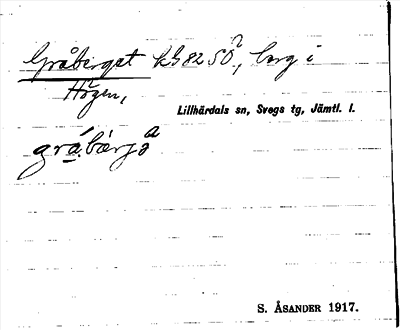 Gråberget kG 82 SO?, berg i
Högen,
Lillhärdals sn, Svegs tg, Jämtl. l.
S. ÅSANDER 1917.